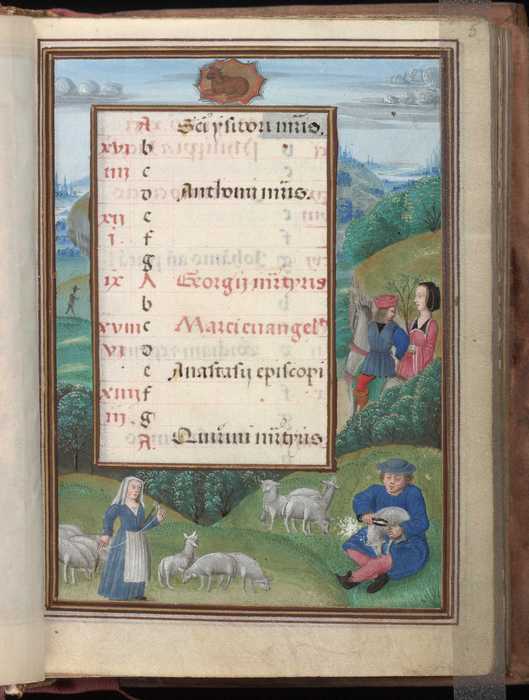 5
A Sci ysitori mris.
xvi b
iiii c
d Anthoni mris.
xii e
i. f
g
ix A Georgij mrtyris
b
xviii c Marci euangel'
vi d
e Anastasij episcopi
xiiii f
iii g
A. Quirini mrtyris